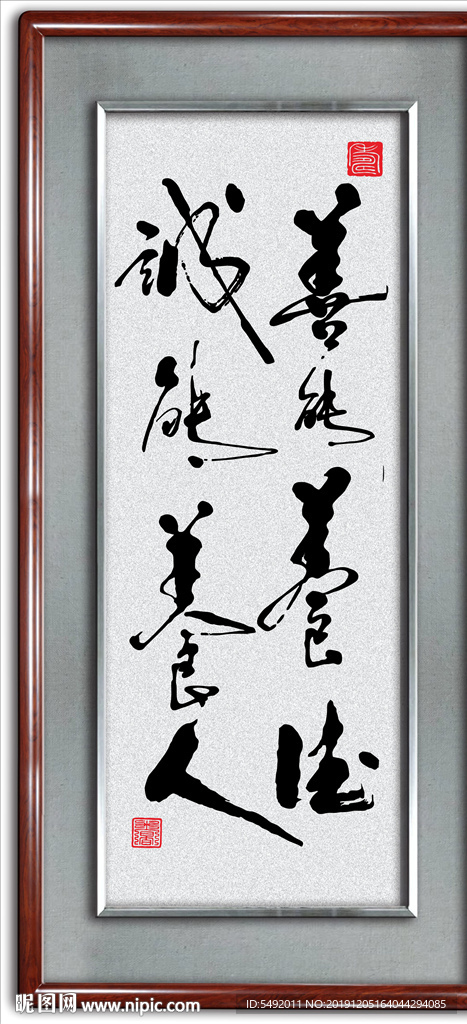 善能養德
誠能養人
昵图网 www.nipic.com
ID:5492011 NO:20191205164044294085